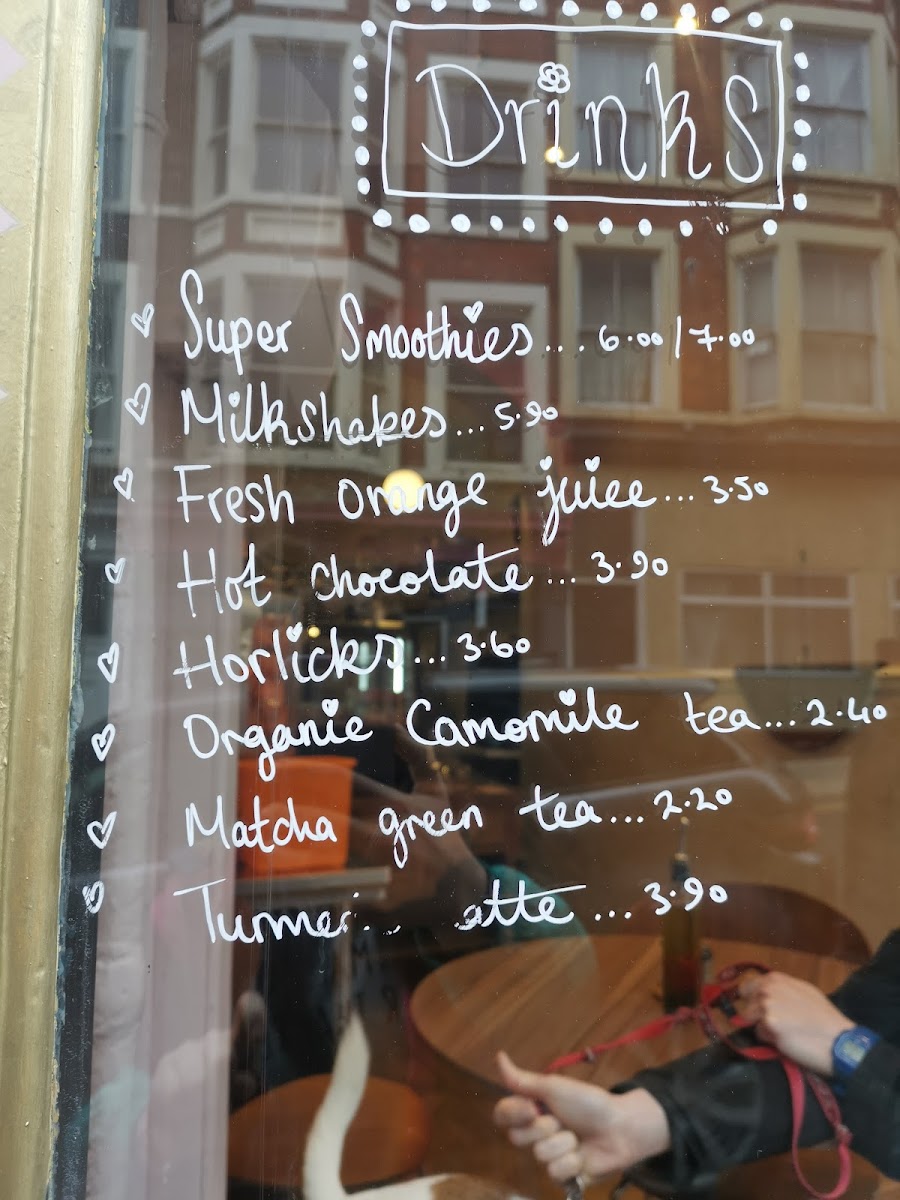 Drinks
Super Smoothies... 6.00/7.00
Milkshakes... 5.90
Fresh orange juice... 3.50
Hot chocolate... 3.90
Horlicks... 3.60
Organic Camomile tea... 2.40
Matcha green tea... 2.20
... 3.90